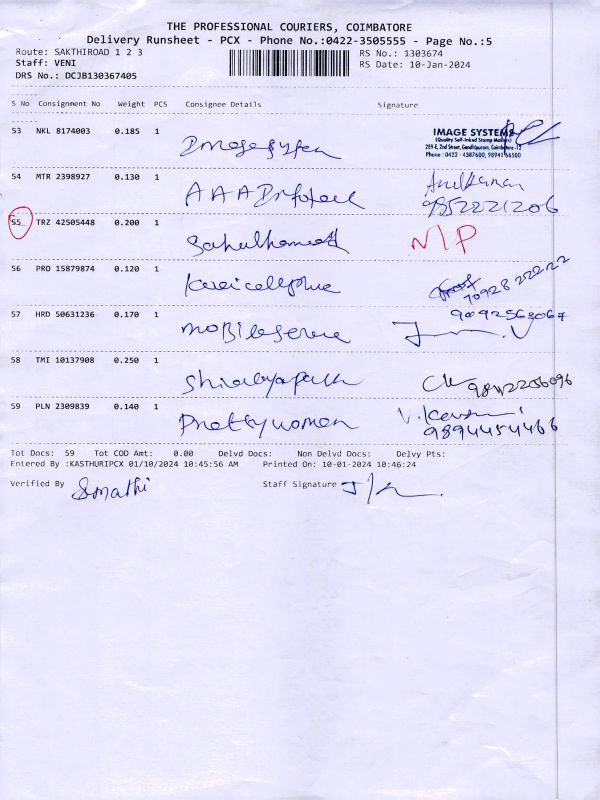 THE PROFESSIONAL COURIERS, COIMBATORE
Delivery Runsheet - PCX - Phone No.:0422-3505555 - Page No.:5
Route: SAKTHIROAD 1 2 3 RS No.: 1303674
Staff: VENI RS Date: 10-Jan-2024
DRS No.: DCJB130367405
S No Consignment No Weight PCS Consignee Details Signature
53 NKL 8174003 0.185 1
IMAGE SYSTEMS
(Quality Self-Inked Stamp Makers)
289-E, 2nd Street, Gandhipuram, Coimbatore-12
Phone : 0422 - 4387600, 98941 66500
54 MTR 2398927 0.130 1 AAA Infotech
9952221206
55 TRZ 42505448 0.200 1 Sahulhameed N/P
56 PRO 15879874 0.120 1
70928 22222
57 HRD 50631236 0.170 1 Mobileservice 9092563067
58 TMI 10137908 0.250 1 9842206096
59 PLN 2309839 0.140 1 Prettywomen
9894454466
Tot Docs: 59 Tot COD Amt: 0.00 Delvd Docs: Non Delvd Docs: Delvy Pts:
Entered By :KASTHURIPCX 01/10/2024 10:45:56 AM Printed On: 10-01-2024 10:46:24
Verified By Staff Signature